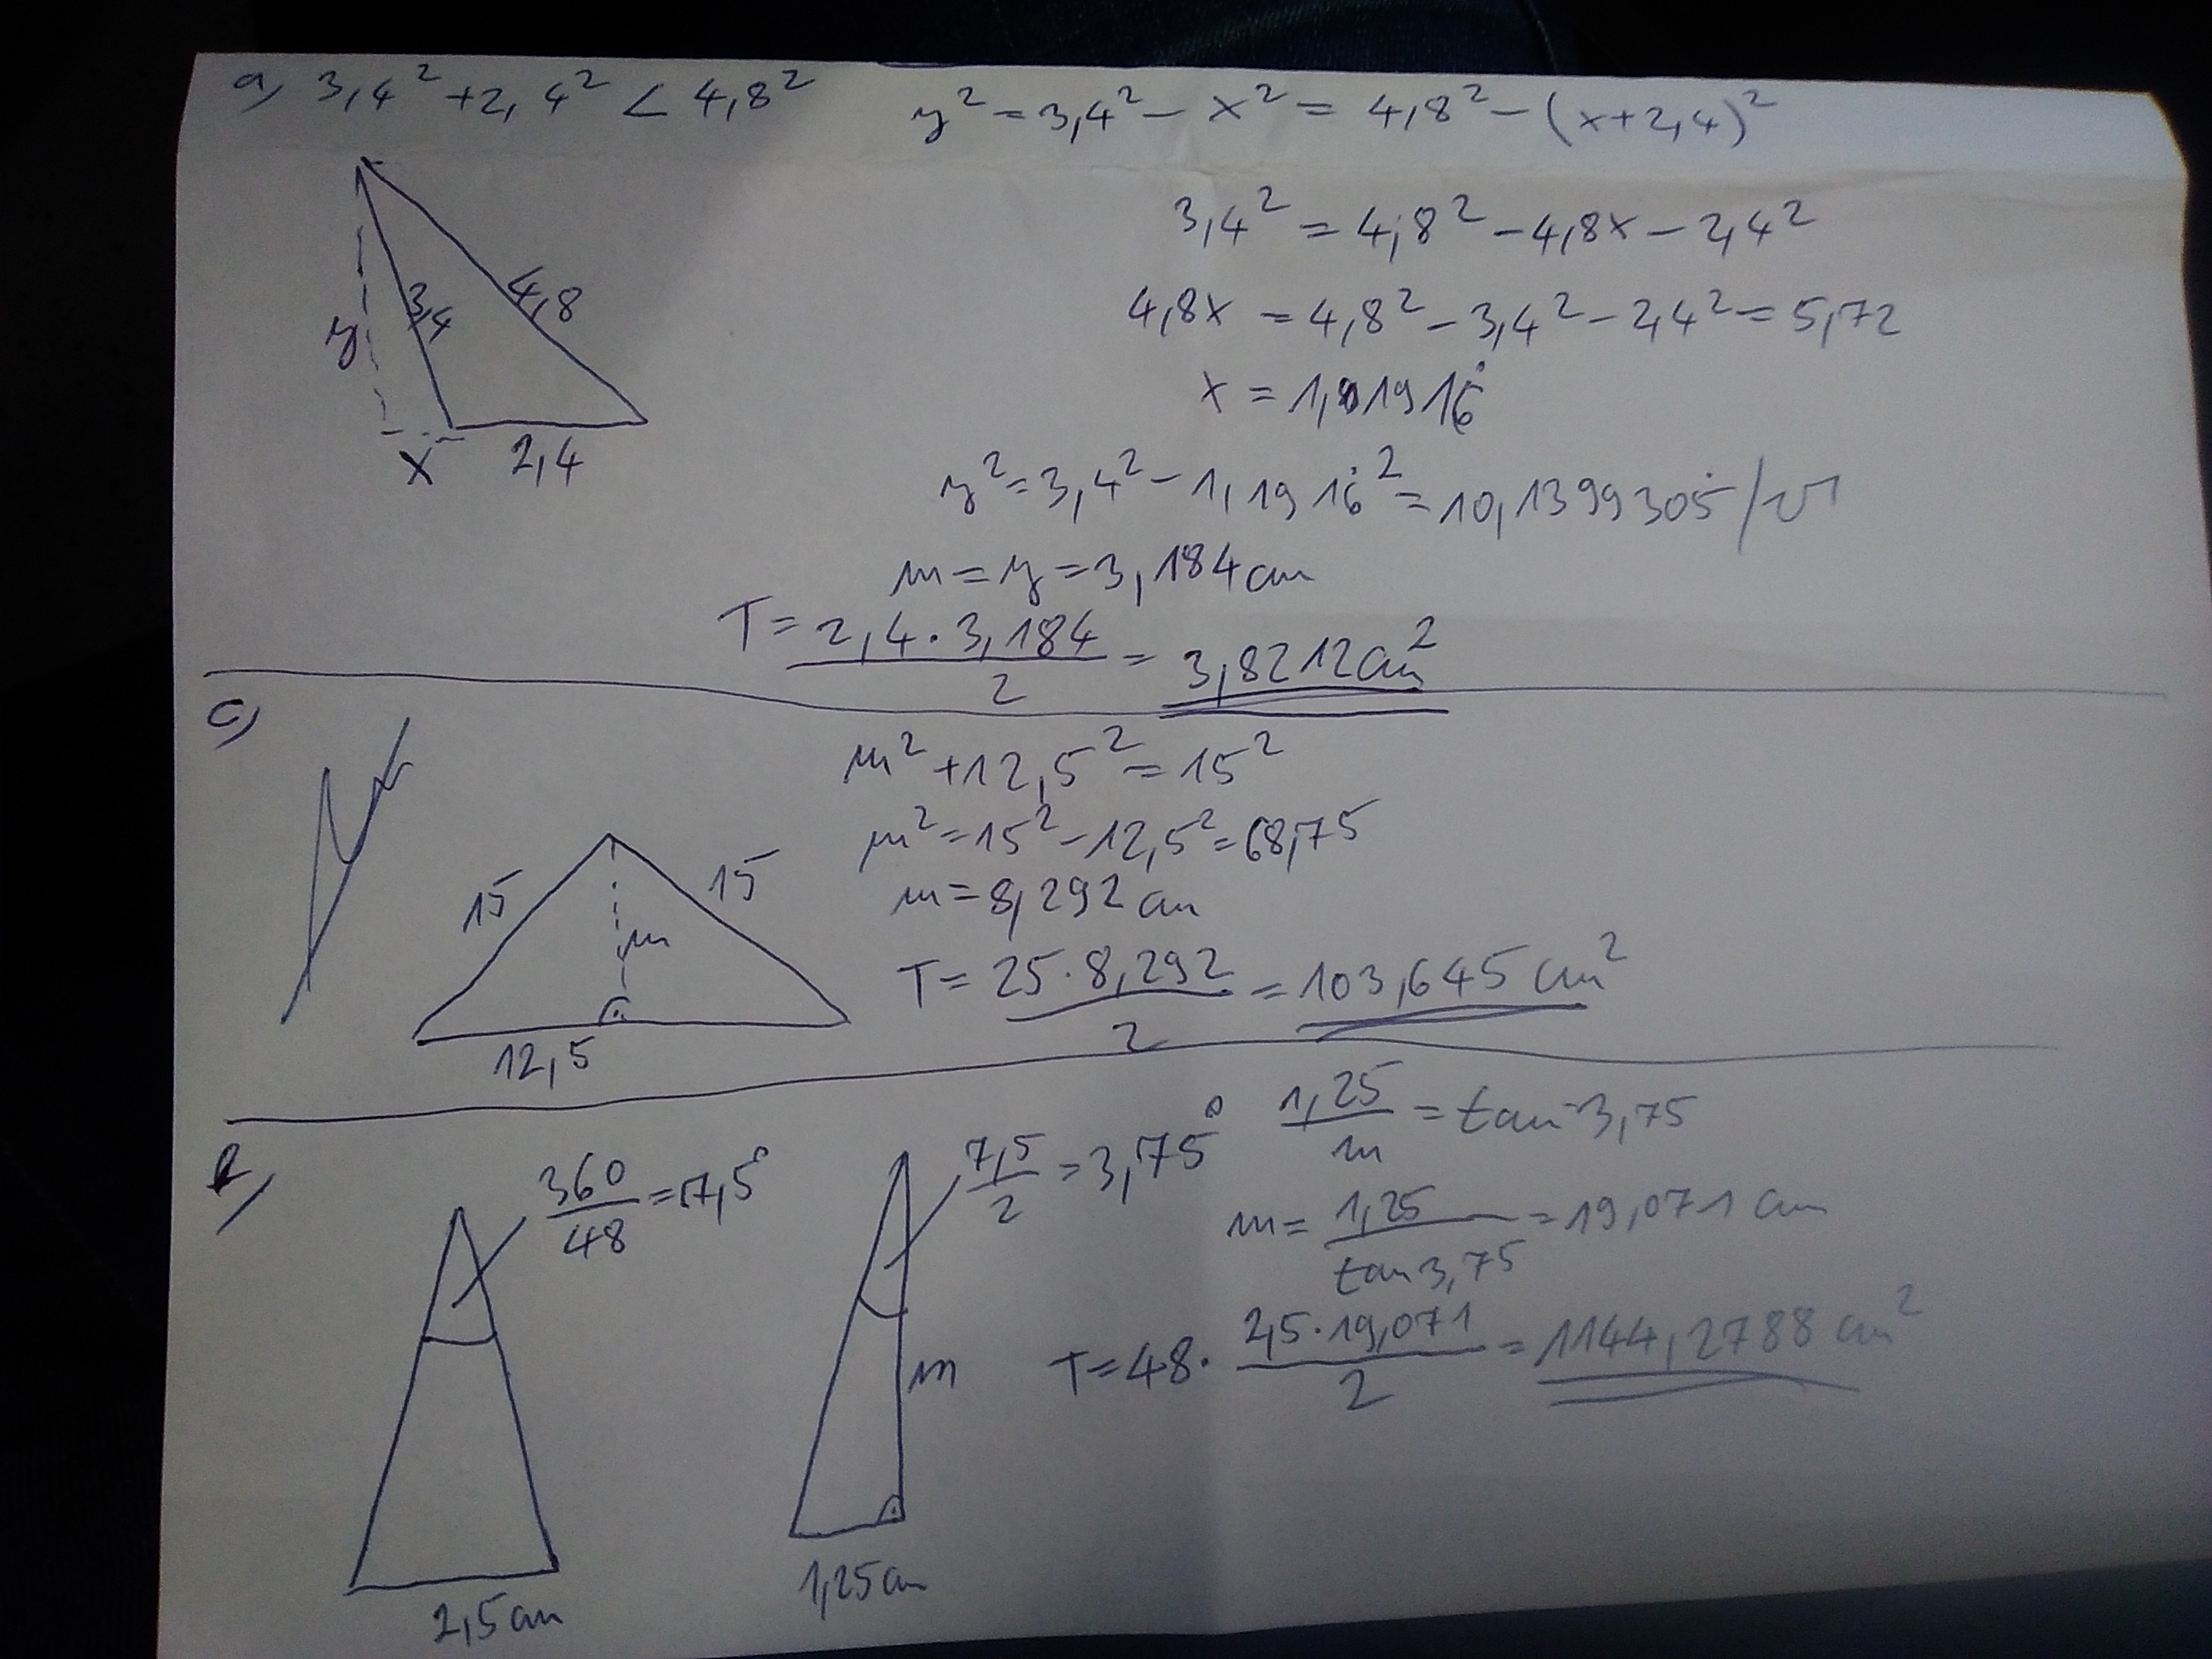 a) 3,4² + 2,4² < 4,8²
y² = 3,4² - x² = 4,8² - (x+2,4)²
3,4² = 4,8² - 4,8x - 2,4²
4,8x = 4,8² - 3,4² - 2,4² = 5,72
x = 1,1916̇
y² = 3,4² - 1,1916̇² = 10,1399305̇ /√
m = y = 3,184 cm
T = 2,4 · 3,184 / 2 = 3,8212 cm²
y
3,4
4,8
x
2,4
c)
m² + 12,5² = 15²
m² = 15² - 12,5² = 68,75
m = 8,292 cm
T = 25 · 8,292 / 2 = 103,645 cm²
15
15
m
12,5
b)
360 / 48 = 7,5°
2,5 cm
7,5 / 2 = 3,75°
m
1,25 cm
1,25 / m = tan 3,75
m = 1,25 / tan 3,75 = 19,071 cm
T = 48 · 2,5 · 19,071 / 2 = 1144,2788 cm²